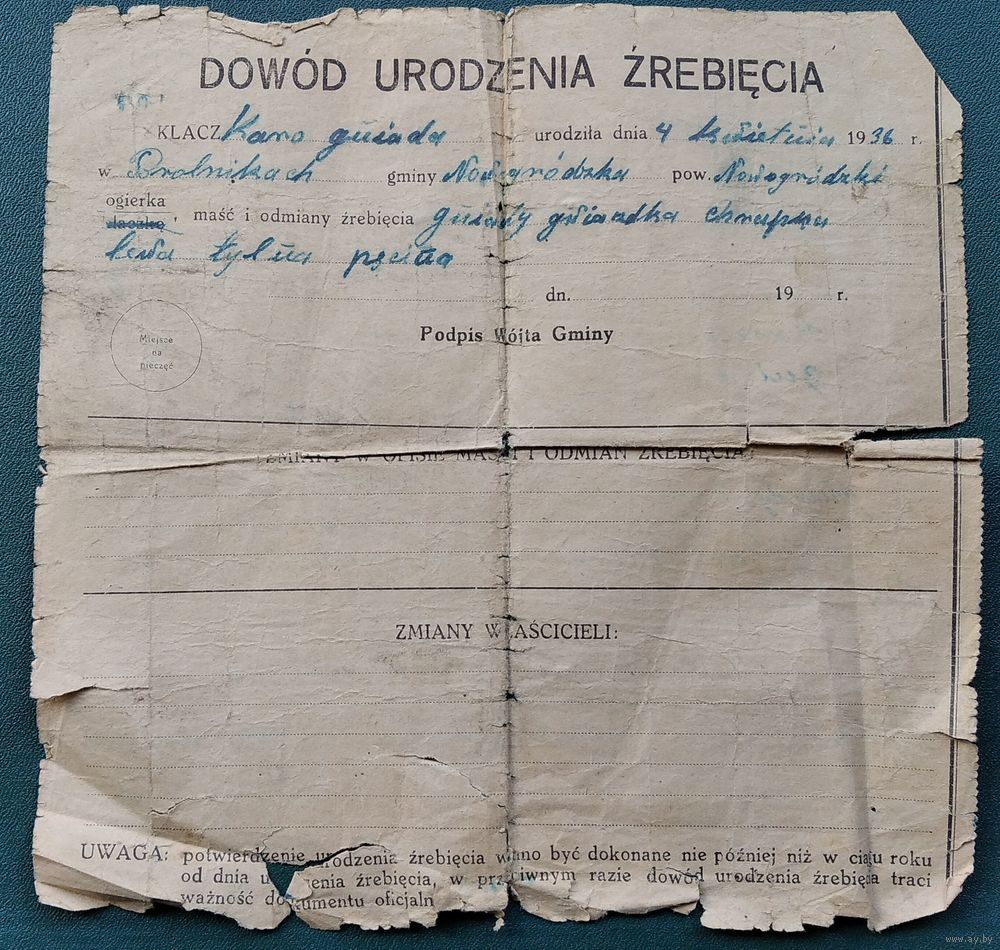 DOWÓD URODZENIA ŹREBIĘCIA
KLACZ Karo gniada urodziła dnia 4 kwietnia 1936 r.
w gminy Nowogródzka pow. Nowogródzki
ogierka
klaczkę, maść i odmiany źrebięcia gniady gwiazdka chrapka
lewa tylna pęcina
dn. 19 r.
Podpis Wójta Gminy
Miejsce
na
pieczęć
ZMIANY W OPISIE MAŚCI I ODMIAN ŹREBIĘCIA:
ZMIANY WŁAŚCICIELI:
UWAGA: potwierdzenie urodzenia źrebięcia winno być dokonane nie później niż w ciągu roku
od dnia urodzenia źrebięcia, w przeciwnym razie dowód urodzenia źrebięcia traci
ważność dokumentu oficjaln
www.ay.by